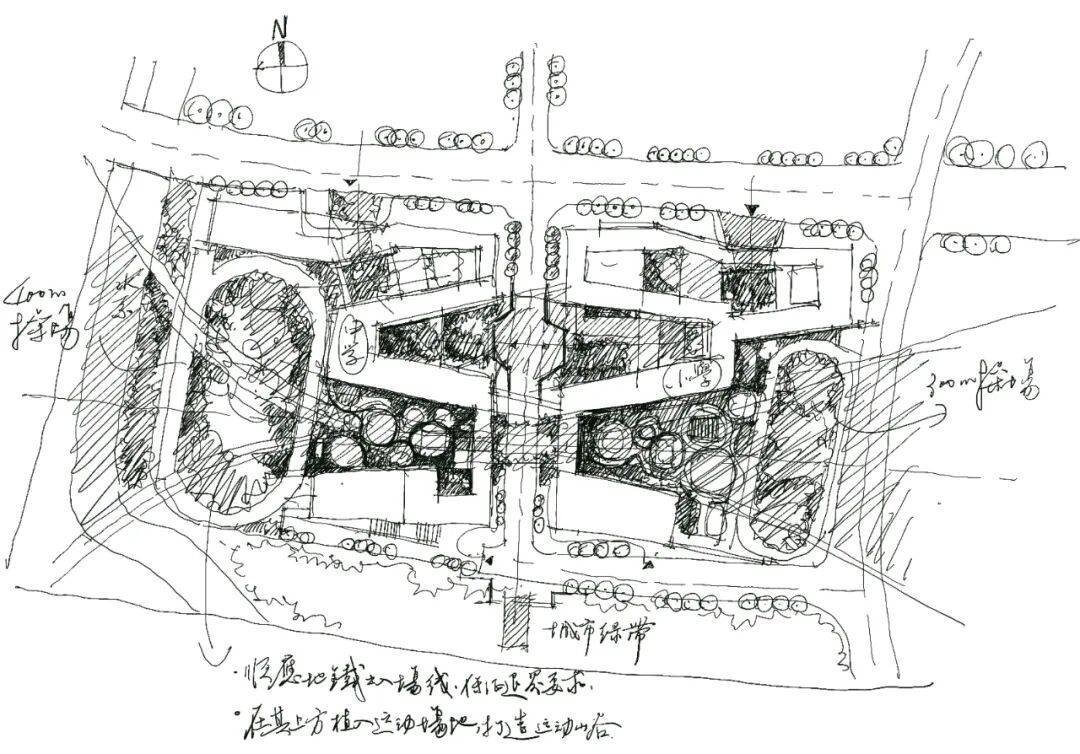 N
400m
操场
中学
小學
300m操場
城市绿带
·顺應地鐵出入場线,保证退界要求.
·在其上方植入运动場地,打造运动山谷.